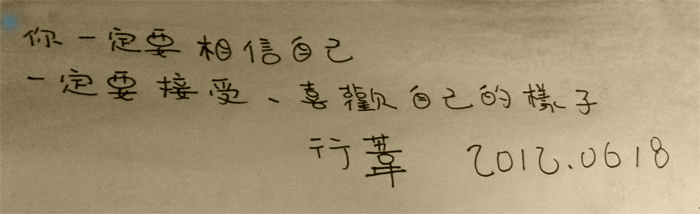 你一定要相信自己
一定要接受、喜歡自己的樣子
行葦 2012.0618